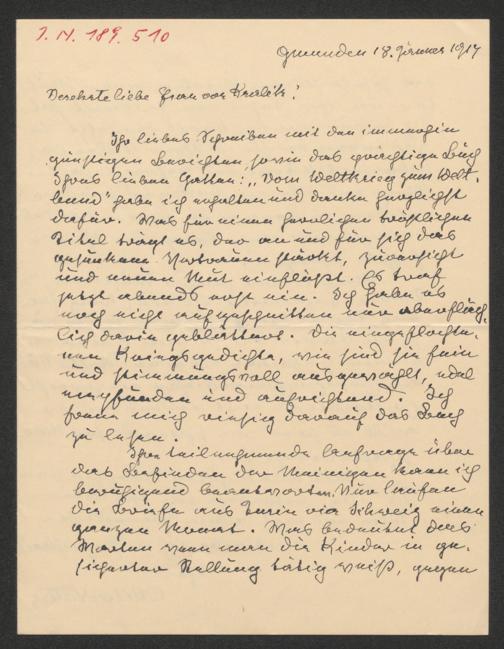 J. N. 189.510
Gmunden 18. Jänner 1917
Verehrte liebe Frau von Kralik!
Ihr liebes Schreiben mit den immerhin
günstigen Berichten, sowie das prächtige Buch
Ihres lieben Gatten: „Vom Weltkrieg zum Welt-
bund" habe ich erhalten und danke herzlichst
dafür. Was für einen herrlichen tröstlichen
Titel trägt es, der an und für sich das
gesunkene Vertrauen stärkt, Zuversicht
und neuen Mut einflößt. Es traf
jetzt abends erst ein. Ich habe es
noch nicht aufgeschnitten nur oberfläch-
lich darin geblättert. Die eingeflochte-
nen Kriegsgedichte, wie sind sie fein
und stimmungsvoll ausgewählt, edel
empfunden und aufrichtend. Ich
freue mich riesig darauf das Buch
zu lesen.
Ihre teilnehmende Anfrage über
das Befinden der Meinigen kann ich
beruhigend beantworten. Nur laufen
die Briefe aus Turin via Schweiz einen
ganzen Monat. Was bedeutet das
Warten wenn man die Kinder in ge-
sicherter Stellung tätig weiß, gegen